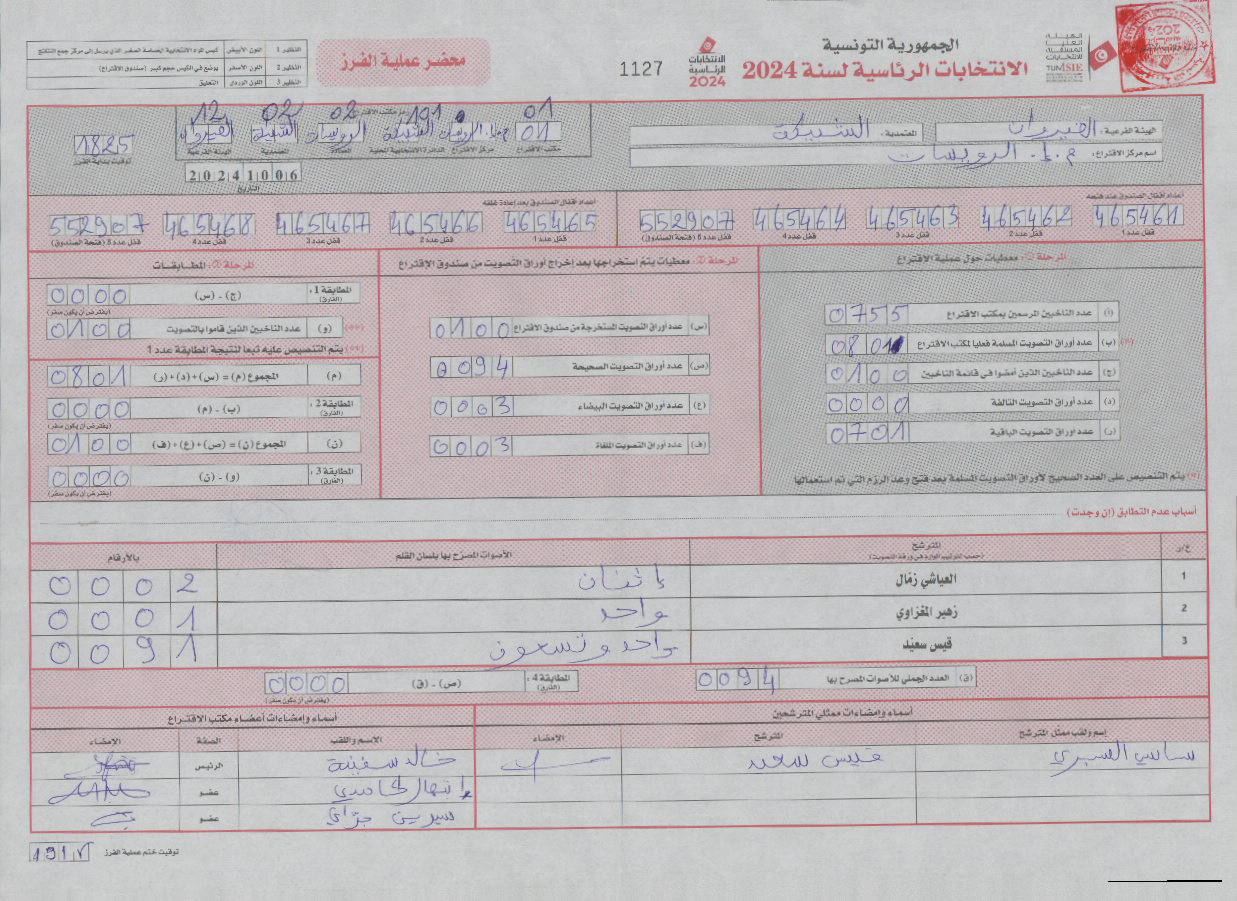 الجمهورية التونسية
الانتخابات الرئاسية لسنة 2024
الهيئة العليا المستقلة للانتخابات
TUNISIE
الانتخابات الرئاسية 2024
1127
محضر عملية الفرز
النظير 1 اللون الأبيض كيس المواد الانتخابية الحساسة الصغير الذي يرسل إلى مركز جمع النتائج
النظير 2 اللون الأصفر يوضع في الكيس حجم كبير (صندوق الاقتراع)
النظير 3 اللون الوردي التعليق
الهيئة الفرعية : القيروان
المعتمدية : الشبيكة
اسم مركز الاقتراع : م.إ. الرويسات
رمز مكتب الاقتراع
01 191 02 02 12
01 م.إ. الرويسات الشبيكة الرويسات الشبيكة القيروان
مكتب الاقتراع مركز الاقتراع الدائرة الانتخابية المحلية العمادة المعتمدية الهيئة الفرعية
20241006
التاريخ
1825
توقيت بداية الفرز
أعداد أقفال الصندوق عند فتحه
465461 465462 465463 465464 552907
قفل عدد 1 قفل عدد 2 قفل عدد 3 قفل عدد 4 قفل عدد 5 (فتحة الصندوق)
أعداد أقفال الصندوق بعد إعادة غلقه
465465 465466 465467 465468 552907
قفل عدد 1 قفل عدد 2 قفل عدد 3 قفل عدد 4 قفل عدد 5 (فتحة الصندوق)
المرحلة 1 : معطيات حول عملية الاقتراع
(أ) عدد الناخبين المرسمين بمكتب الاقتراع 0755
(*) (ب) عدد أوراق التصويت المسلمة فعليا لمكتب الاقتراع 0801
(ج) عدد الناخبين الذين أمضوا في قائمة الناخبين 0100
(د) عدد أوراق التصويت التالفة 0000
(ر) عدد أوراق التصويت الباقية 0701
(*) يتم التنصيص على العدد الصحيح لأوراق التصويت المسلمة بعد فتح وعد الرزم التي تم استعمالها
المرحلة 2 : معطيات يتم استخراجها بعد إخراج أوراق التصويت من صندوق الاقتراع
(س) عدد أوراق التصويت المستخرجة من صندوق الاقتراع 0100
(ص) عدد أوراق التصويت الصحيحة 0094
(ع) عدد أوراق التصويت البيضاء 0003
(ف) عدد أوراق التصويت الملغاة 0003
المرحلة 3 : المطابقات
المطابقة 1 : (الفارق) (ج) - (س) 0000
(يفترض أن يكون صفر)
(**) (و) عدد الناخبين الذين قاموا بالتصويت 0100
(**) يتم التنصيص عليه تبعا لنتيجة المطابقة عدد 1
(م) المجموع (م) = (س) + (د) + (ر) 0801
المطابقة 2 : (الفارق) (ب) - (م) 0000
(يفترض أن يكون صفر)
(ن) المجموع (ن) = (ص) + (ع) + (ف) 0100
المطابقة 3 : (الفارق) (و) - (ن) 0000
(يفترض أن يكون صفر)
أسباب عدم التطابق (إن وجدت)
ع/ر المترشح الأصوات المصرح بها بلسان القلم بالأرقام
(حسب الترتيب الوارد في ورقة التصويت)
1 العياشي زمّال إثنان 0002
2 زهير المغزاوي واحد 0001
3 قيس سعيّد واحد وتسعون 0091
(ق) العدد الجملي للأصوات المصرح بها 0094
المطابقة 4 : (الفارق) (ص) - (ق) 0000
(يفترض أن يكون صفر)
أسماء وإمضاءات ممثلي المترشحين
اسم ولقب ممثل المترشح المترشح الإمضاء
ساسي قيس سعيد
أسماء وإمضاءات أعضاء مكتب الاقتراع
الاسم واللقب الصفة الإمضاء
خالد سفينة الرئيس
عضو
سيرين عضو
توقيت ختم عملية الفرز